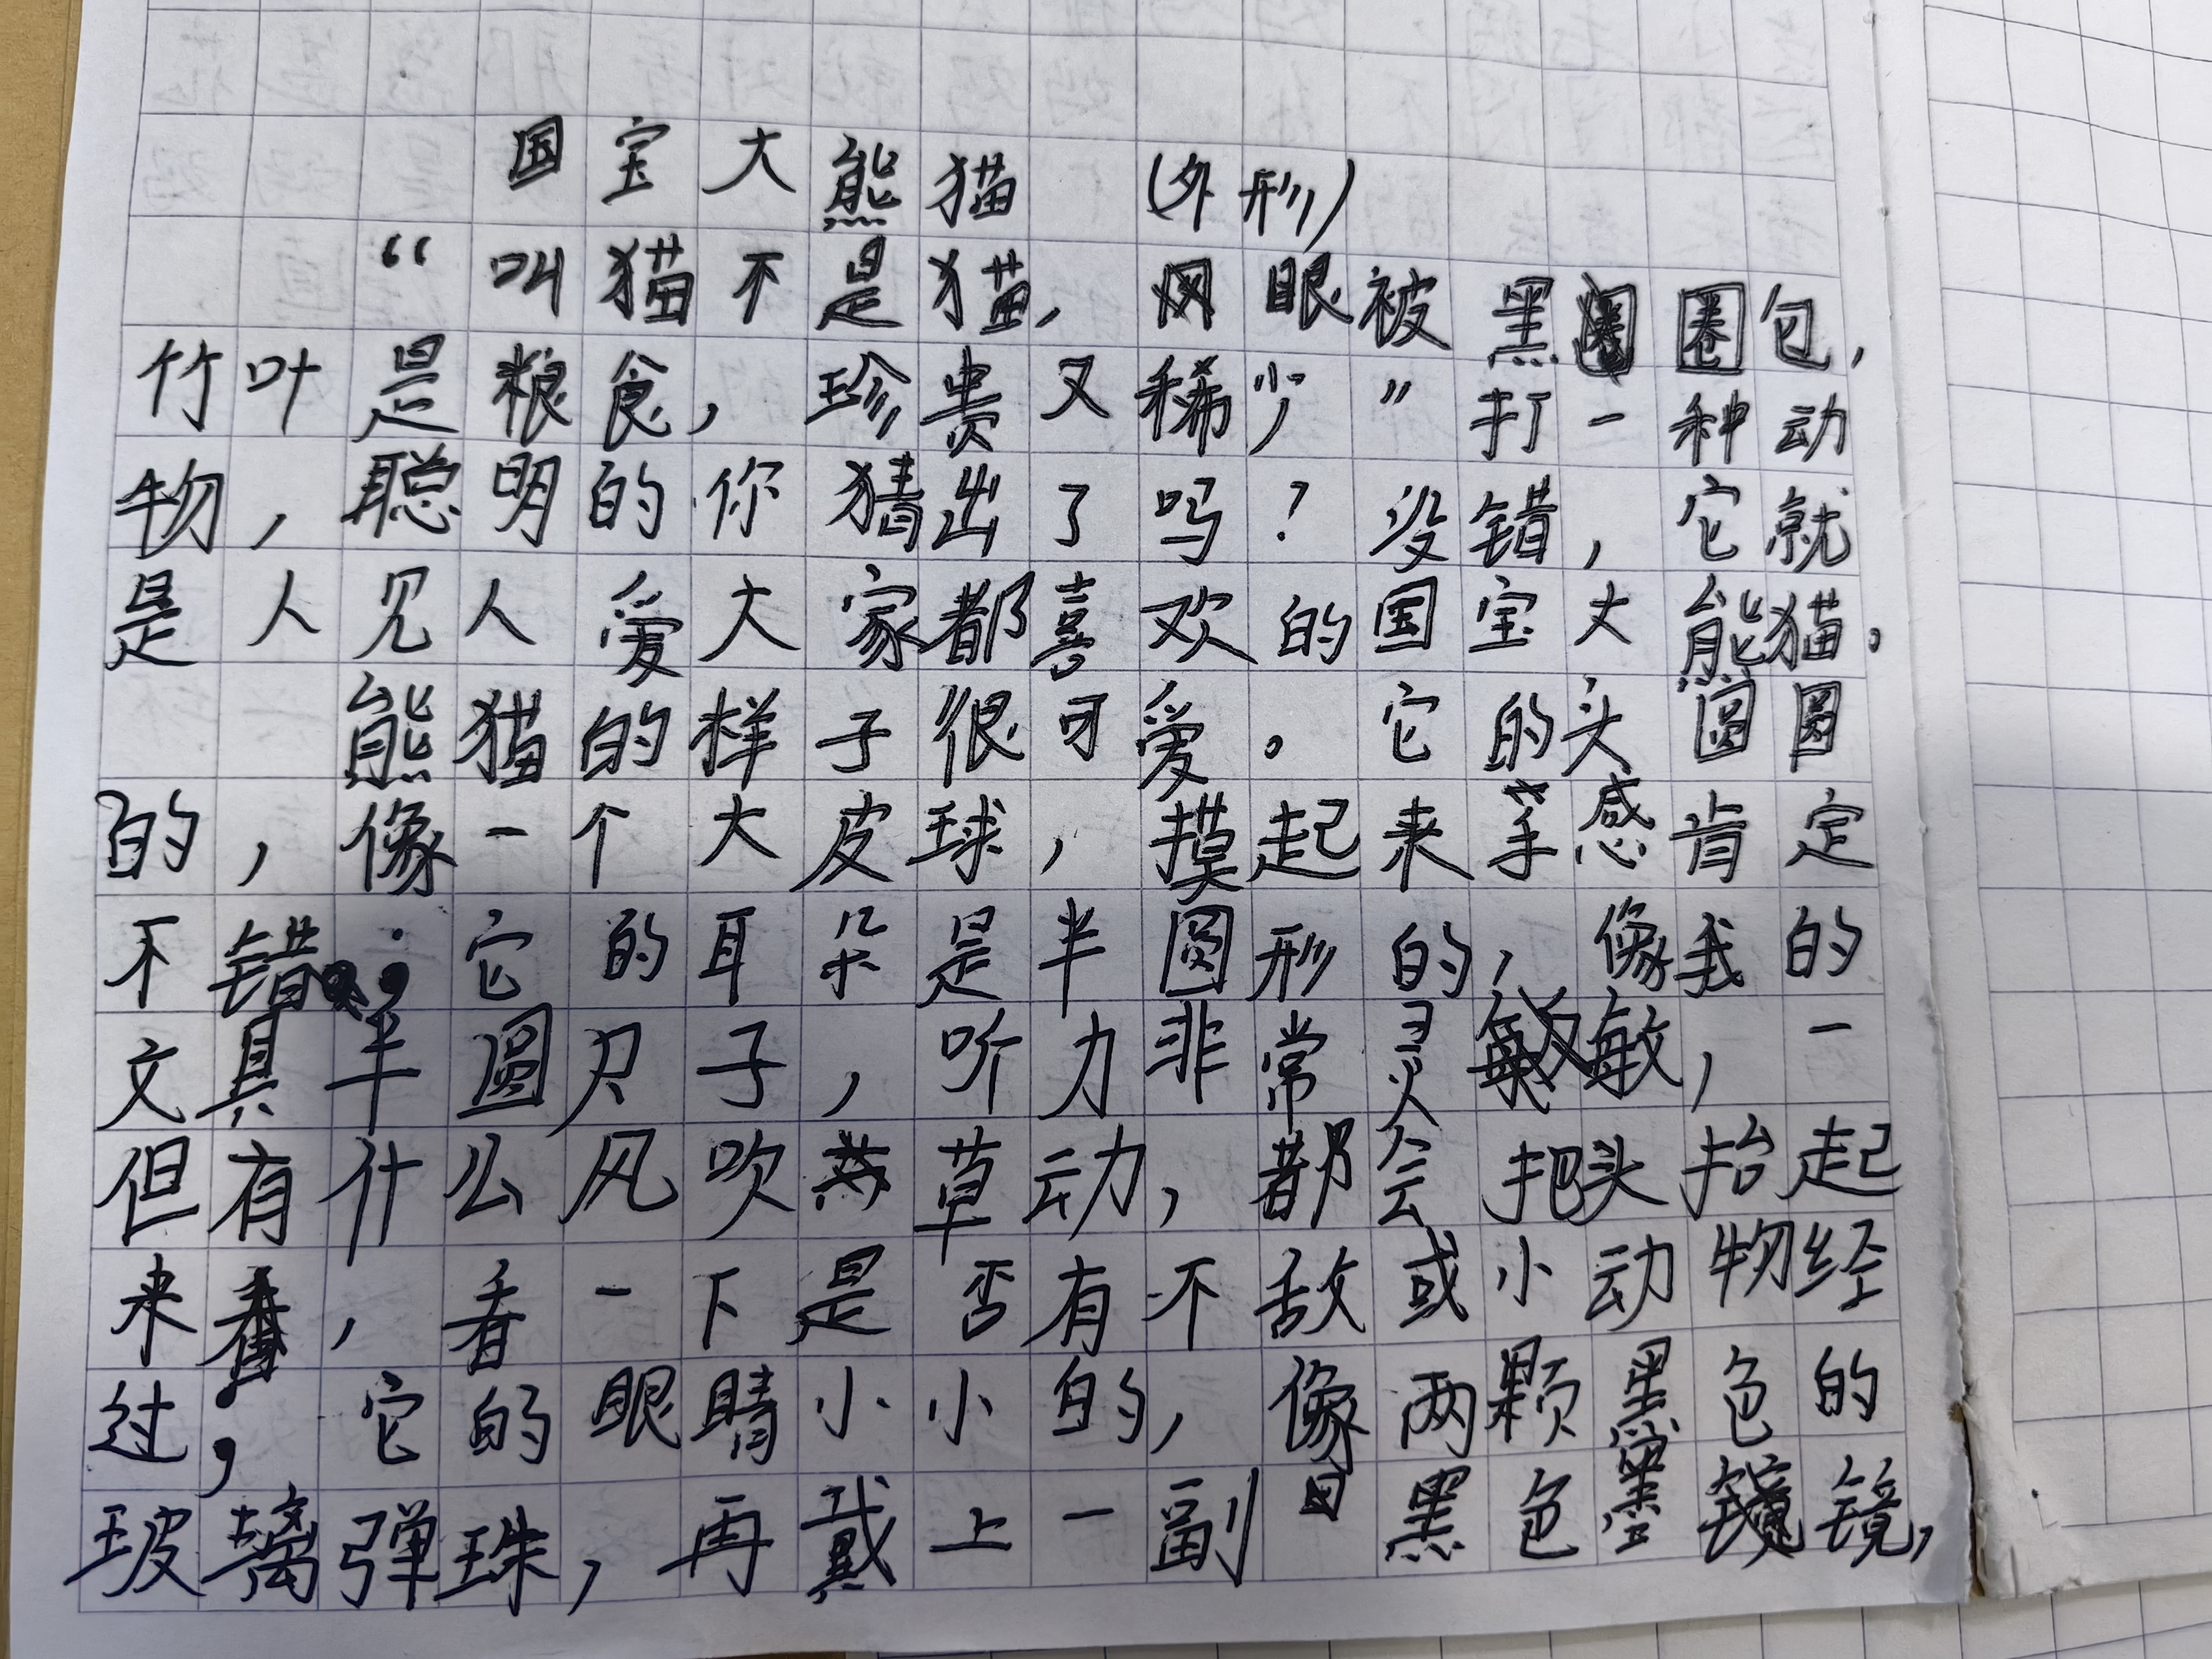 国宝大熊猫 (外形)
“叫猫不是猫,眼被黑圈包,
竹叶是粮食,珍贵又稀少”打一种动
物,聪明的你猜出了吗?没错,它就
是人见人爱大家都喜欢的国宝大熊猫。
熊猫的样子很可爱。它的头圆圆
的,像一个大皮球,摸起来手感肯定
不错;它的耳朵是半圆形的,像我的
文具半圆尺子,听力非常灵敏,一
但有什么风吹草动,都会把头抬起
来,看一下是否有不敌或小动物经
过;它的眼睛小小的,像两颗黑色的
玻璃弹珠,再戴上一副黑色墨镜,